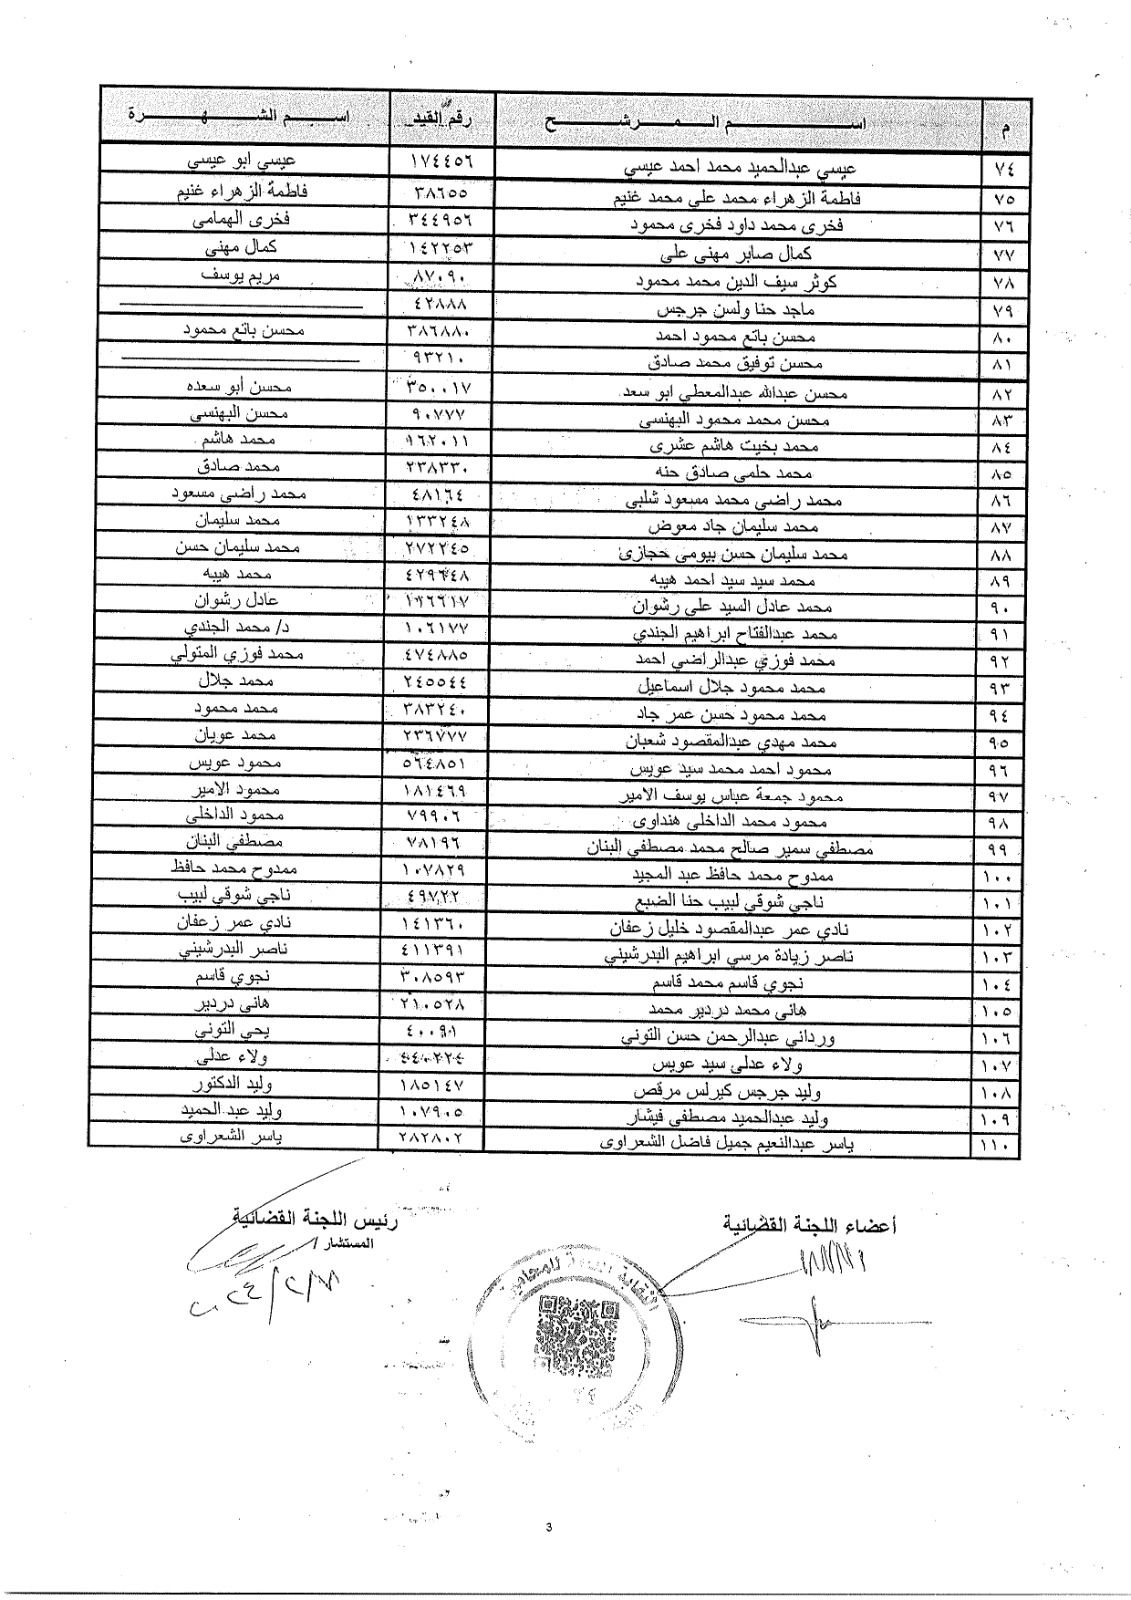 م اسم المرشح رقم القيد اسم الشهرة
٧٤ عيسي عبدالحميد محمد احمد عيسي ١٧٤٤٥٦ عيسي ابو عيسي
٧٥ فاطمة الزهراء محمد علي محمد غنيم ٣٨٦٥٥ فاطمة الزهراء غنيم
٧٦ فخرى محمد داود فخرى محمود ٣٤٤٩٥٦ فخرى الهمامى
٧٧ كمال صابر مهنى على ١٤٢٢٥٣ كمال مهنى
٧٨ كوثر سيف الدين محمد محمود ٨٧٠٩٠ مريم يوسف
٧٩ ماجد حنا ولسن جرجس ٤٢٨٨٨
٨٠ محسن باتع محمود احمد ٣٨٦٨٨٠ محسن باتع محمود
٨١ محسن توفيق محمد صادق ٩٣٢١٠
٨٢ محسن عبدالله عبدالمعطي ابو سعد ٣٥٠٠١٧ محسن أبو سعده
٨٣ محسن محمد محمود البهنسى ٩٠٧٧٧ محسن البهنسى
٨٤ محمد بخيت هاشم عشرى ١٦٢٠١١ محمد هاشم
٨٥ محمد حلمى صادق حنه ٢٣٨٣٣٠ محمد صادق
٨٦ محمد راضى محمد مسعود شلبى ٤٨١٦٤ محمد راضي مسعود
٨٧ محمد سليمان جاد معوض ١٣٣٢٤٨ محمد سليمان
٨٨ محمد سليمان حسن بيومى حجازى ٢٧٢٢٤٥ محمد سليمان حسن
٨٩ محمد سيد سيد احمد هيبه ٤٢٩٦٤٨ محمد هيبه
٩٠ محمد عادل السيد على رشوان ١٦٦٦١٧ عادل رشوان
٩١ محمد عبدالفتاح ابراهيم الجندي ١٠٦١٧٧ د/ محمد الجندي
٩٢ محمد فوزي عبدالراضي احمد ٤٧٤٨٨٥ محمد فوزي المتولي
٩٣ محمد محمود جلال اسماعيل ٢٤٥٥٤٤ محمد جلال
٩٤ محمد محمود حسن عمر جاد ٣٨٣٢٤٠ محمد محمود
٩٥ محمد مهدي عبدالمقصود شعبان ٢٣٦٧٧٧ محمد عوبان
٩٦ محمود احمد محمد سيد عويس ٥٦٤٨٥١ محمود عويس
٩٧ محمود جمعة عباس يوسف الامير ١٨١٤٦٩ محمود الامير
٩٨ محمود محمد الداخلى هنداوى ٧٩٩٠٦ محمود الداخلى
٩٩ مصطفي سمير صالح محمد مصطفي البنان ٧٨١٩٦ مصطفي البنان
١٠٠ ممدوح محمد حافظ عبد المجيد ١٠٧٨٢٩ ممدوح محمد حافظ
١٠١ ناجي شوقي لبيب حنا الضبع ٤٩٧٢٢ ناجي شوقي لبيب
١٠٢ نادي عمر عبدالمقصود خليل زعفان ١٤١٣٦٠ نادي عمر زعفان
١٠٣ ناصر زيادة مرسي ابراهيم البدرشيني ٤١١٣٩١ ناصر البدرشيني
١٠٤ نجوي قاسم محمد قاسم ٣٠٨٥٩٣ نجوي قاسم
١٠٥ هانى محمد دردير محمد ٢١٠٥٢٨ هانى دردير
١٠٦ ورداني عبدالرحمن حسن التوني ٤٠٠٩١ يحي التوني
١٠٧ ولاء عدلى سيد عويس ولاء عدلى
١٠٨ وليد جرجس كيرلس مرقص ١٨٥١٤٧ وليد الدكتور
١٠٩ وليد عبدالحميد مصطفى فيشار ١٠٧٩٠٥ وليد عبد الحميد
١١٠ ياسر عبدالنعيم جميل فاضل الشعراوى ٢٨٢٨٠٢ ياسر الشعراوى
أعضاء اللجنة القضائية رئيس اللجنة القضائية
المستشار /
النقابة العامة للمحامين
3